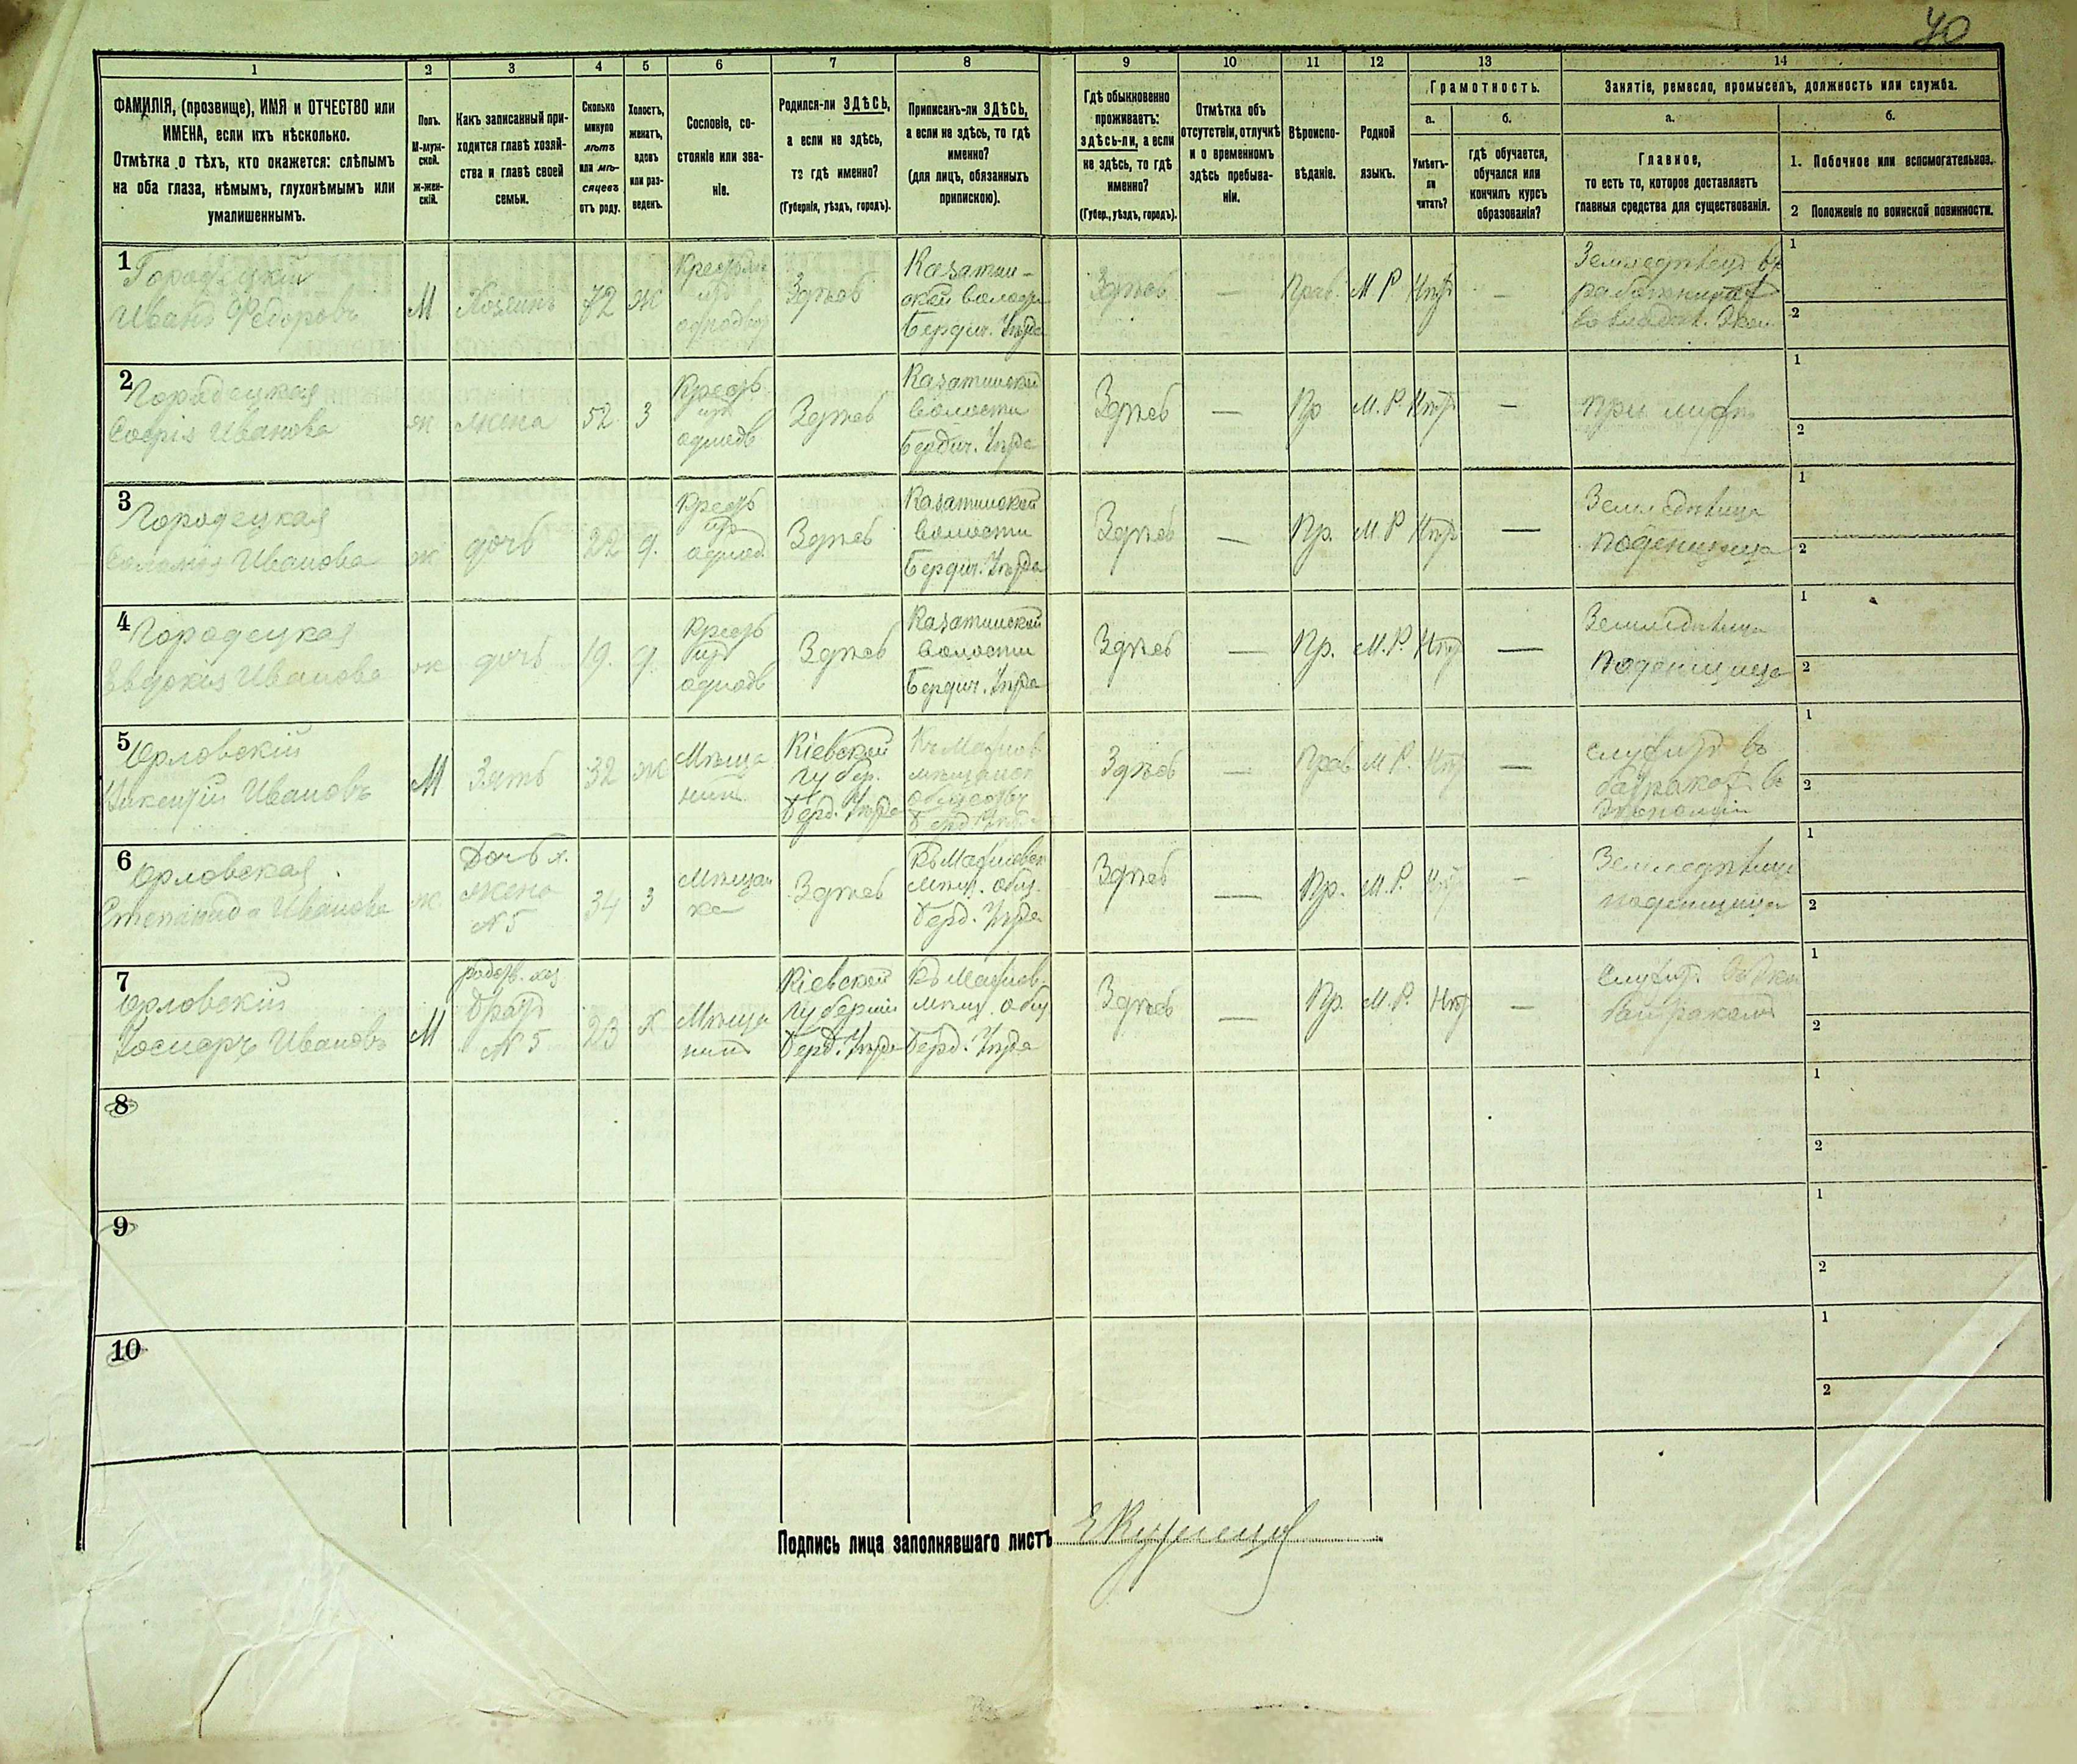 40
1
2
3
4
5
6
7
8
9
10
11
12
13
14
ФАМИЛІЯ, (прозвище), ИМЯ и ОТЧЕСТВО или
ИМЕНА, если ихъ нѣсколько.
Отмѣтка о тѣхъ, кто окажется: слѣпымъ
на оба глаза, нѣмымъ, глухонѣмымъ или
умалишеннымъ.
Полъ.
М-муж-
ской.
ж-жен-
скій.
Какъ записанный при-
ходится главѣ хозяй-
ства и главѣ своей
семьи.
Сколько
минуло
лѣтъ
или мѣ-
сяцевъ
отъ роду.
Холостъ,
женатъ,
вдовъ
или раз-
веденъ.
Сословіе, со-
стояніе или зва-
ніе.
Родился-ли ЗДѢСЬ,
а если не здѣсь,
то гдѣ именно?
(Губернія, уѣздъ, городъ).
Приписанъ-ли ЗДѢСЬ,
а если не здѣсь, то гдѣ
именно?
(для лицъ, обязанныхъ
припискою).
Гдѣ обыкновенно
проживаетъ:
здѣсь-ли, а если
не здѣсь, то гдѣ
именно?
(Губер., уѣздъ, городъ).
Отмѣтка объ
отсутствіи, отлучкѣ
и о временномъ
здѣсь пребыва-
ніи.
Вѣроиспо-
вѣданіе.
Родной
языкъ.
Грамотность.
а.
Умѣетъ-
ли
читать?
б.
гдѣ обучается,
обучался или
кончилъ курсъ
образованія?
Занятіе, ремесло, промыселъ, должность или служба.
а.
Главное,
то есть то, которое доставляетъ
главныя средства для существованія.
б.
1. Побочное или вспомогательное.
2 Положеніе по воинской повинности.
1
Городецкій
Иванъ Федоровъ
М
Хозяинъ
72
Ж
Здѣсь
Казатин-
ской
Бердич. Уѣзда
Здѣсь
—
Прав.
М Р
Нѣтъ
—
1
2
2
Городецкая
Софія Иванова
ж
жена
52
З
Здѣсь
Казатинской
волости
Бердич. Уѣзда
Здѣсь
—
Пр
М. Р
Нѣтъ
—
1
2
3
Городецкая
Иванова
ж
дочь
22
д.
Здѣсь
Казатинской
волости
Бердич. Уѣзда
Здѣсь
—
Пр.
М. Р
Нѣтъ
—
поденщица
1
2
4
Городецкая
Евдокія Иванова
ж
дочь
19.
д.
Здѣсь
Казатинской
волости
Бердич. Уѣзда
Здѣсь
—
Пр.
М. Р.
Нѣтъ
—
поденщица
1
2
5
Орловскій
Викентій Ивановъ
М
Зять
32
Ж
Мѣща
нинъ
Кіевской
губер.
Берд. Уѣзда
Здѣсь
—
Прав
М Р.
Нѣтъ
—
служитъ въ
1
2
6
Орловская
Степанида Иванова
ж
Дочь х.
жена
№ 5
34
З
Мѣщан
ка
Здѣсь
Берд. Уѣзда
Здѣсь
—
Пр.
М. Р.
Нѣтъ
—
поденщица
1
2
7
Орловскій
Ивановъ
М
братъ
№ 5
23
Х
Мѣща
нинъ
Кіевской
губерніи
Берд. Уѣзда
Берд. Уѣзда
Здѣсь
—
Пр.
М. Р.
Нѣтъ
—
1
2
8
1
2
9
1
2
10
1
2
Подпись лица заполнявшаго листъ